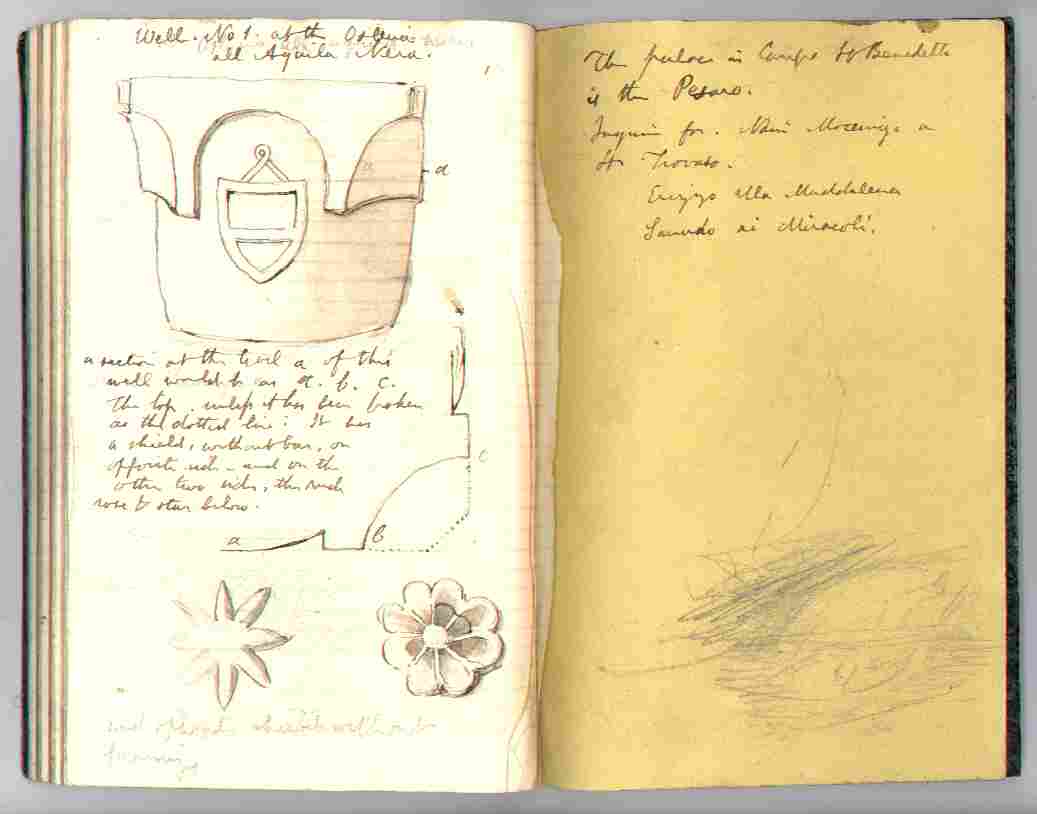 Well. No 1. at the Osteria
all Aquila Nera.
1
a
a section at the level a of this
well would be as a. b. c.
The top, unless it has been broken
as the dotted line: It has
a shield, without bar, on
opposite side - and on the
other two sides, the
rose & star below.
c
a
b
and shield without
The palace in Campo St Benedetto
is the Pesaro.
Inquire for. Nani Mocenigo a
St Trovaso.
Erizzo alla Maddalena
Sanudo ai Miracoli.